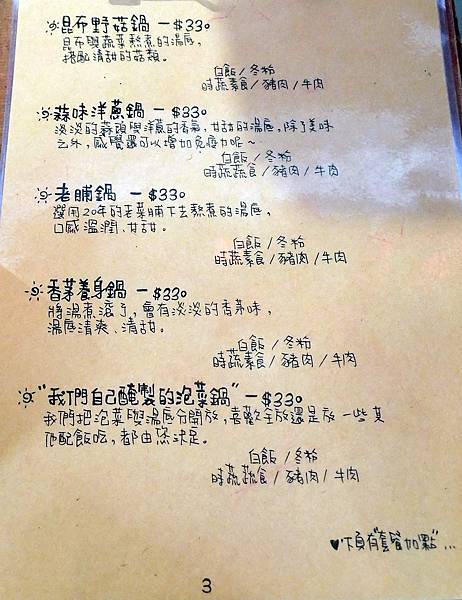 昆布野菇鍋 － $330
昆布與蔬菜熬煮的湯底，
搭配清甜的菇類。
白飯 / 冬粉
時蔬素食 / 豬肉 / 牛肉
蒜味洋蔥鍋 － $330
淡淡的蒜頭與洋蔥的香氣，甘甜的湯底，除了美味
之外，感覺還可以增加免疫力呢～
白飯 / 冬粉
時蔬蔬食 / 豬肉 / 牛肉
老脯鍋 － $330
選用20年的老菜脯下去熬煮的湯底，
口感溫潤、甘甜。
白飯 / 冬粉
時蔬素食 / 豬肉 / 牛肉
香茅養身鍋 － $330
將湯煮滾了，會有淡淡的香茅味，
湯底清爽、清甜。
白飯 / 冬粉
時蔬素食 / 豬肉 / 牛肉
"我們自己醃製的泡菜鍋" － $330
我們把泡菜與湯底分開放，喜歡全放還是放一些其
他配飯吃，都由您決定。
白飯 / 冬粉
時蔬蔬食 / 豬肉 / 牛肉
♥下頁有"套餐加點"...
3